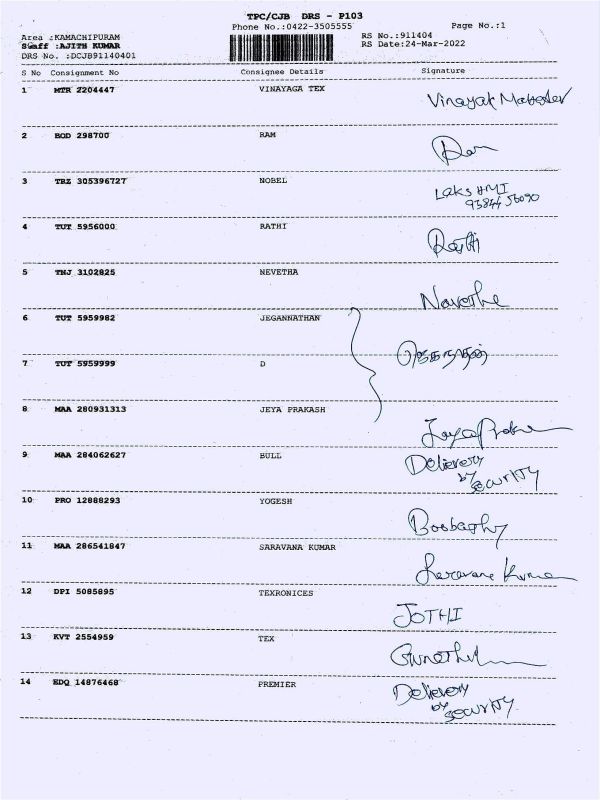 TPC/CJB DRS - P103
Phone No.:0422-3505555
Page No.:1
Area :KAMACHIPURAM
RS No.:911404
Staff :AJITH KUMAR
RS Date:24-Mar-2022
DRS No. :DCJB91140401
S No Consignment No Consignee Details Signature
1 MTR 2204447 VINAYAGA TEX
Vinayak
2 BOD 298700 RAM
Ram
3 TRZ 305396727 NOBEL
LAKSHMI
4 TUT 5956000 RATHI
Rathi
5 TNJ 3102825 NEVETHA
6 TUT 5959982 JEGANNATHAN
7 TUT 5959999 D
8 MAA 280931313 JEYA PRAKASH
9 MAA 284062627 BULL
Delievery
by
security
10 PRO 12888293 YOGESH
11 MAA 286541847 SARAVANA KUMAR
Saravana Kumar
12 DPI 5085895 TEXRONICES
JOTHI
13 KVT 2554959 TEX
14 EDQ 14876468 PREMIER
Delievery
by
security